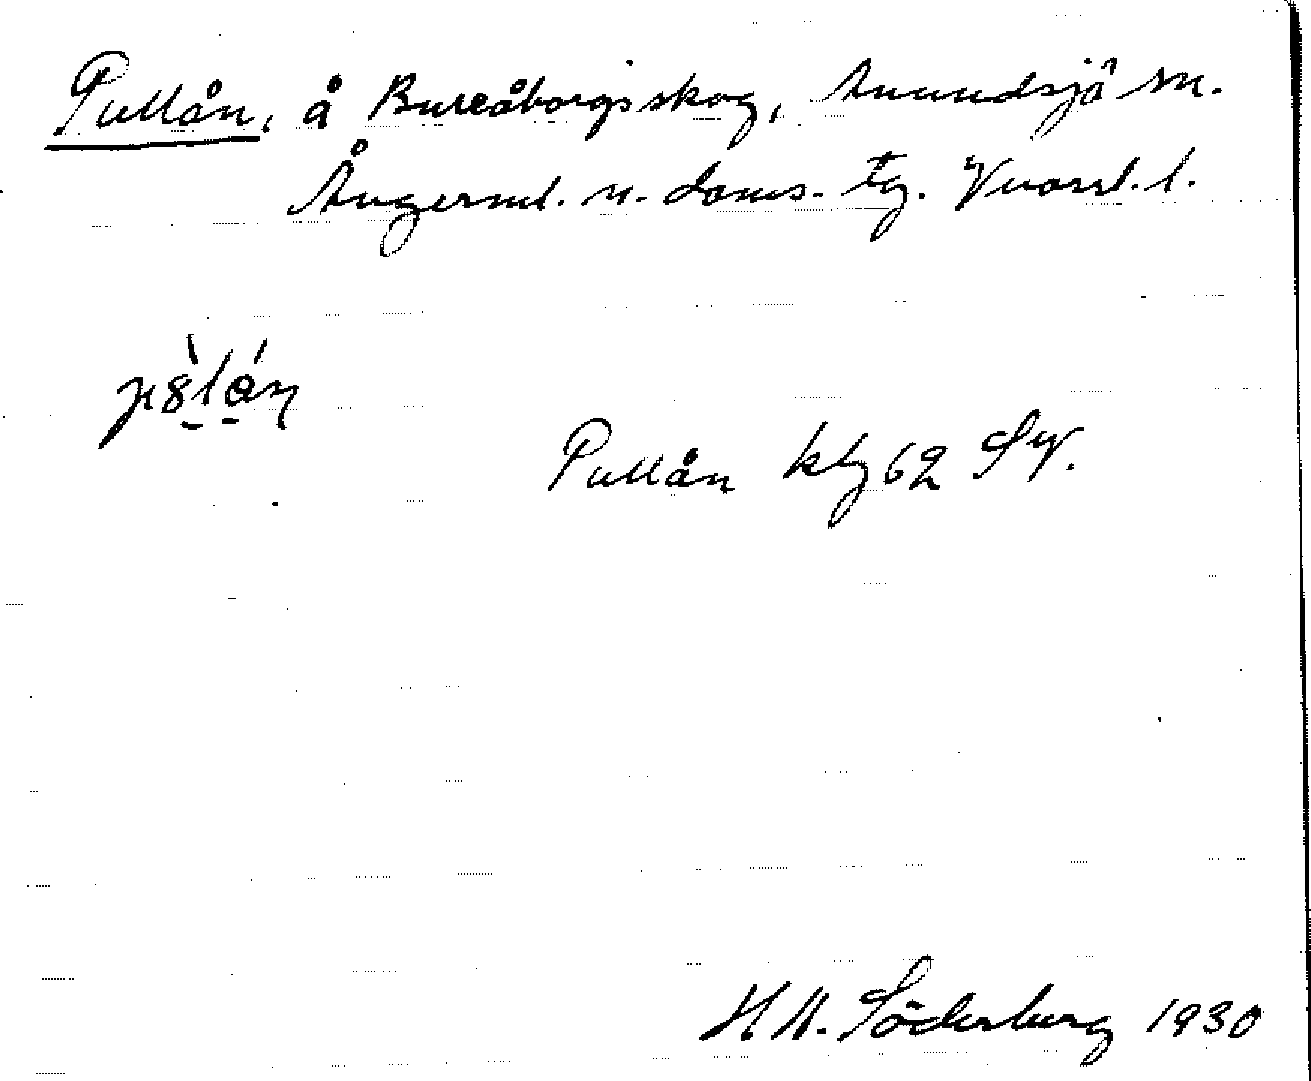 Pullån, å Bureåborgsskog, Anundsjö sn.
Ångerml. n. doms. tg. Vnorrl. l.
Pullån klg 62 SV.
H M. Söderberg 1930